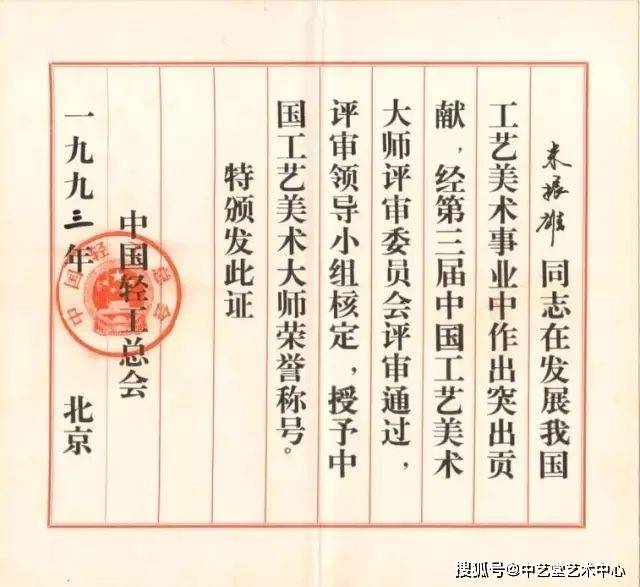 米振雄同志在发展我国
工艺美术事业中作出突出贡
献，经第三届中国工艺美术
大师评审委员会评审通过，
评审领导小组核定，授予中
国工艺美术大师荣誉称号。
特颁发此证
中国轻工总会
一九九三年 北京
搜狐号@中艺堂艺术中心